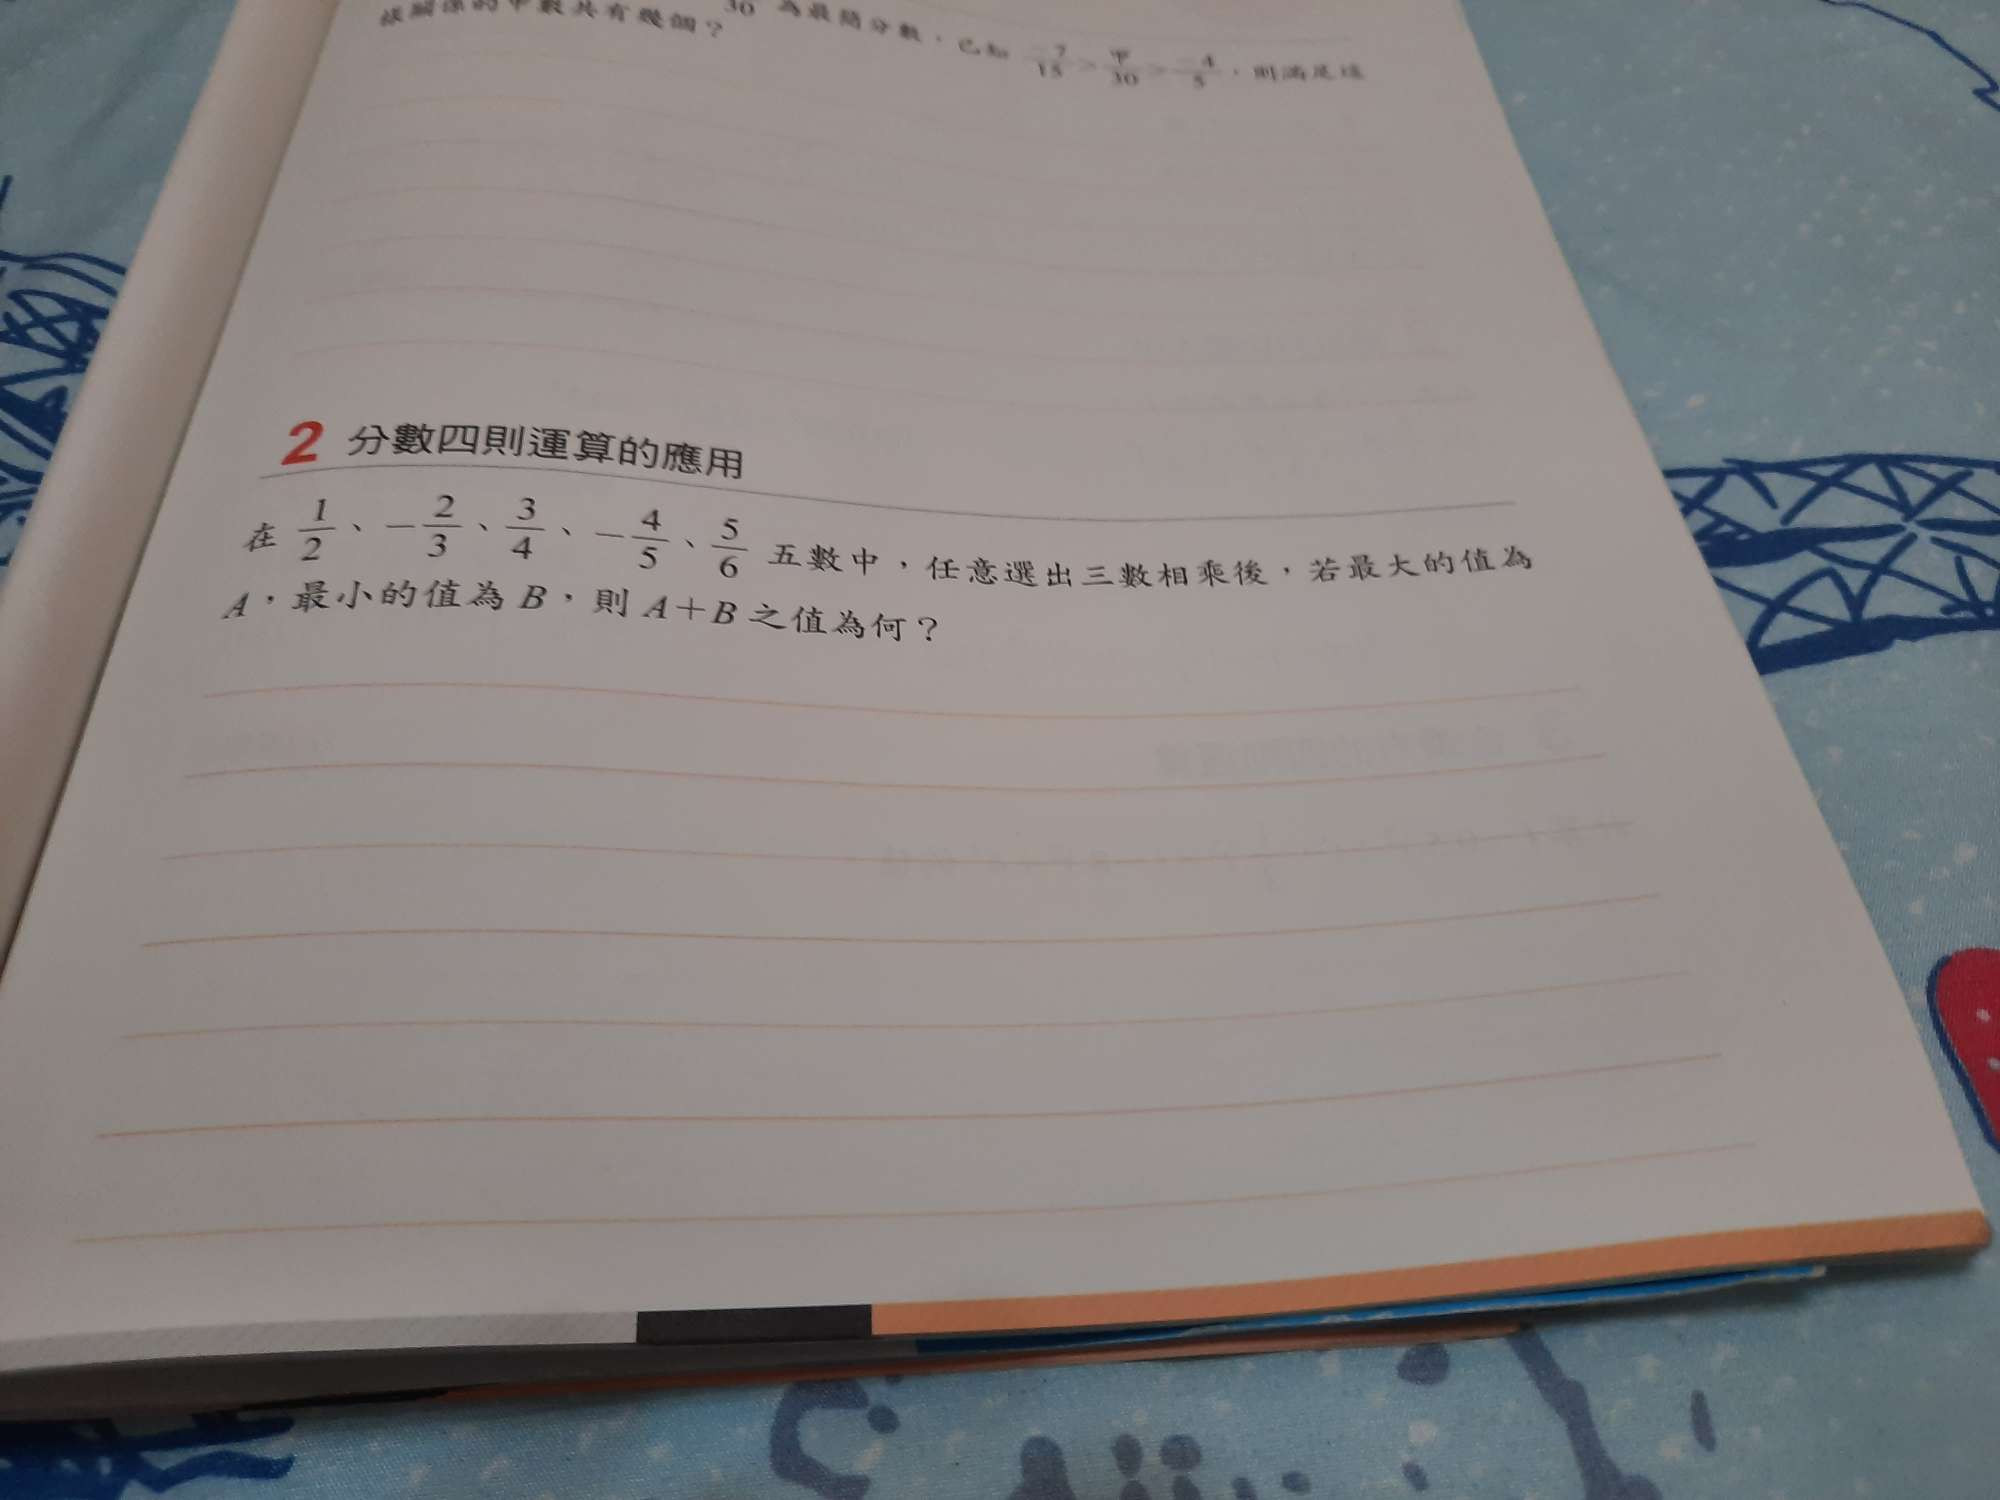 30 為最簡分數，已知 -7/15 > 甲/30 > -4/5，則滿足這
樣關係的甲數共有幾個？
2 分數四則運算的應用
在 1/2、-2/3、3/4、-4/5、5/6 五數中，任意選出三數相乘後，若最大的值為
A，最小的值為 B，則 A+B 之值為何？